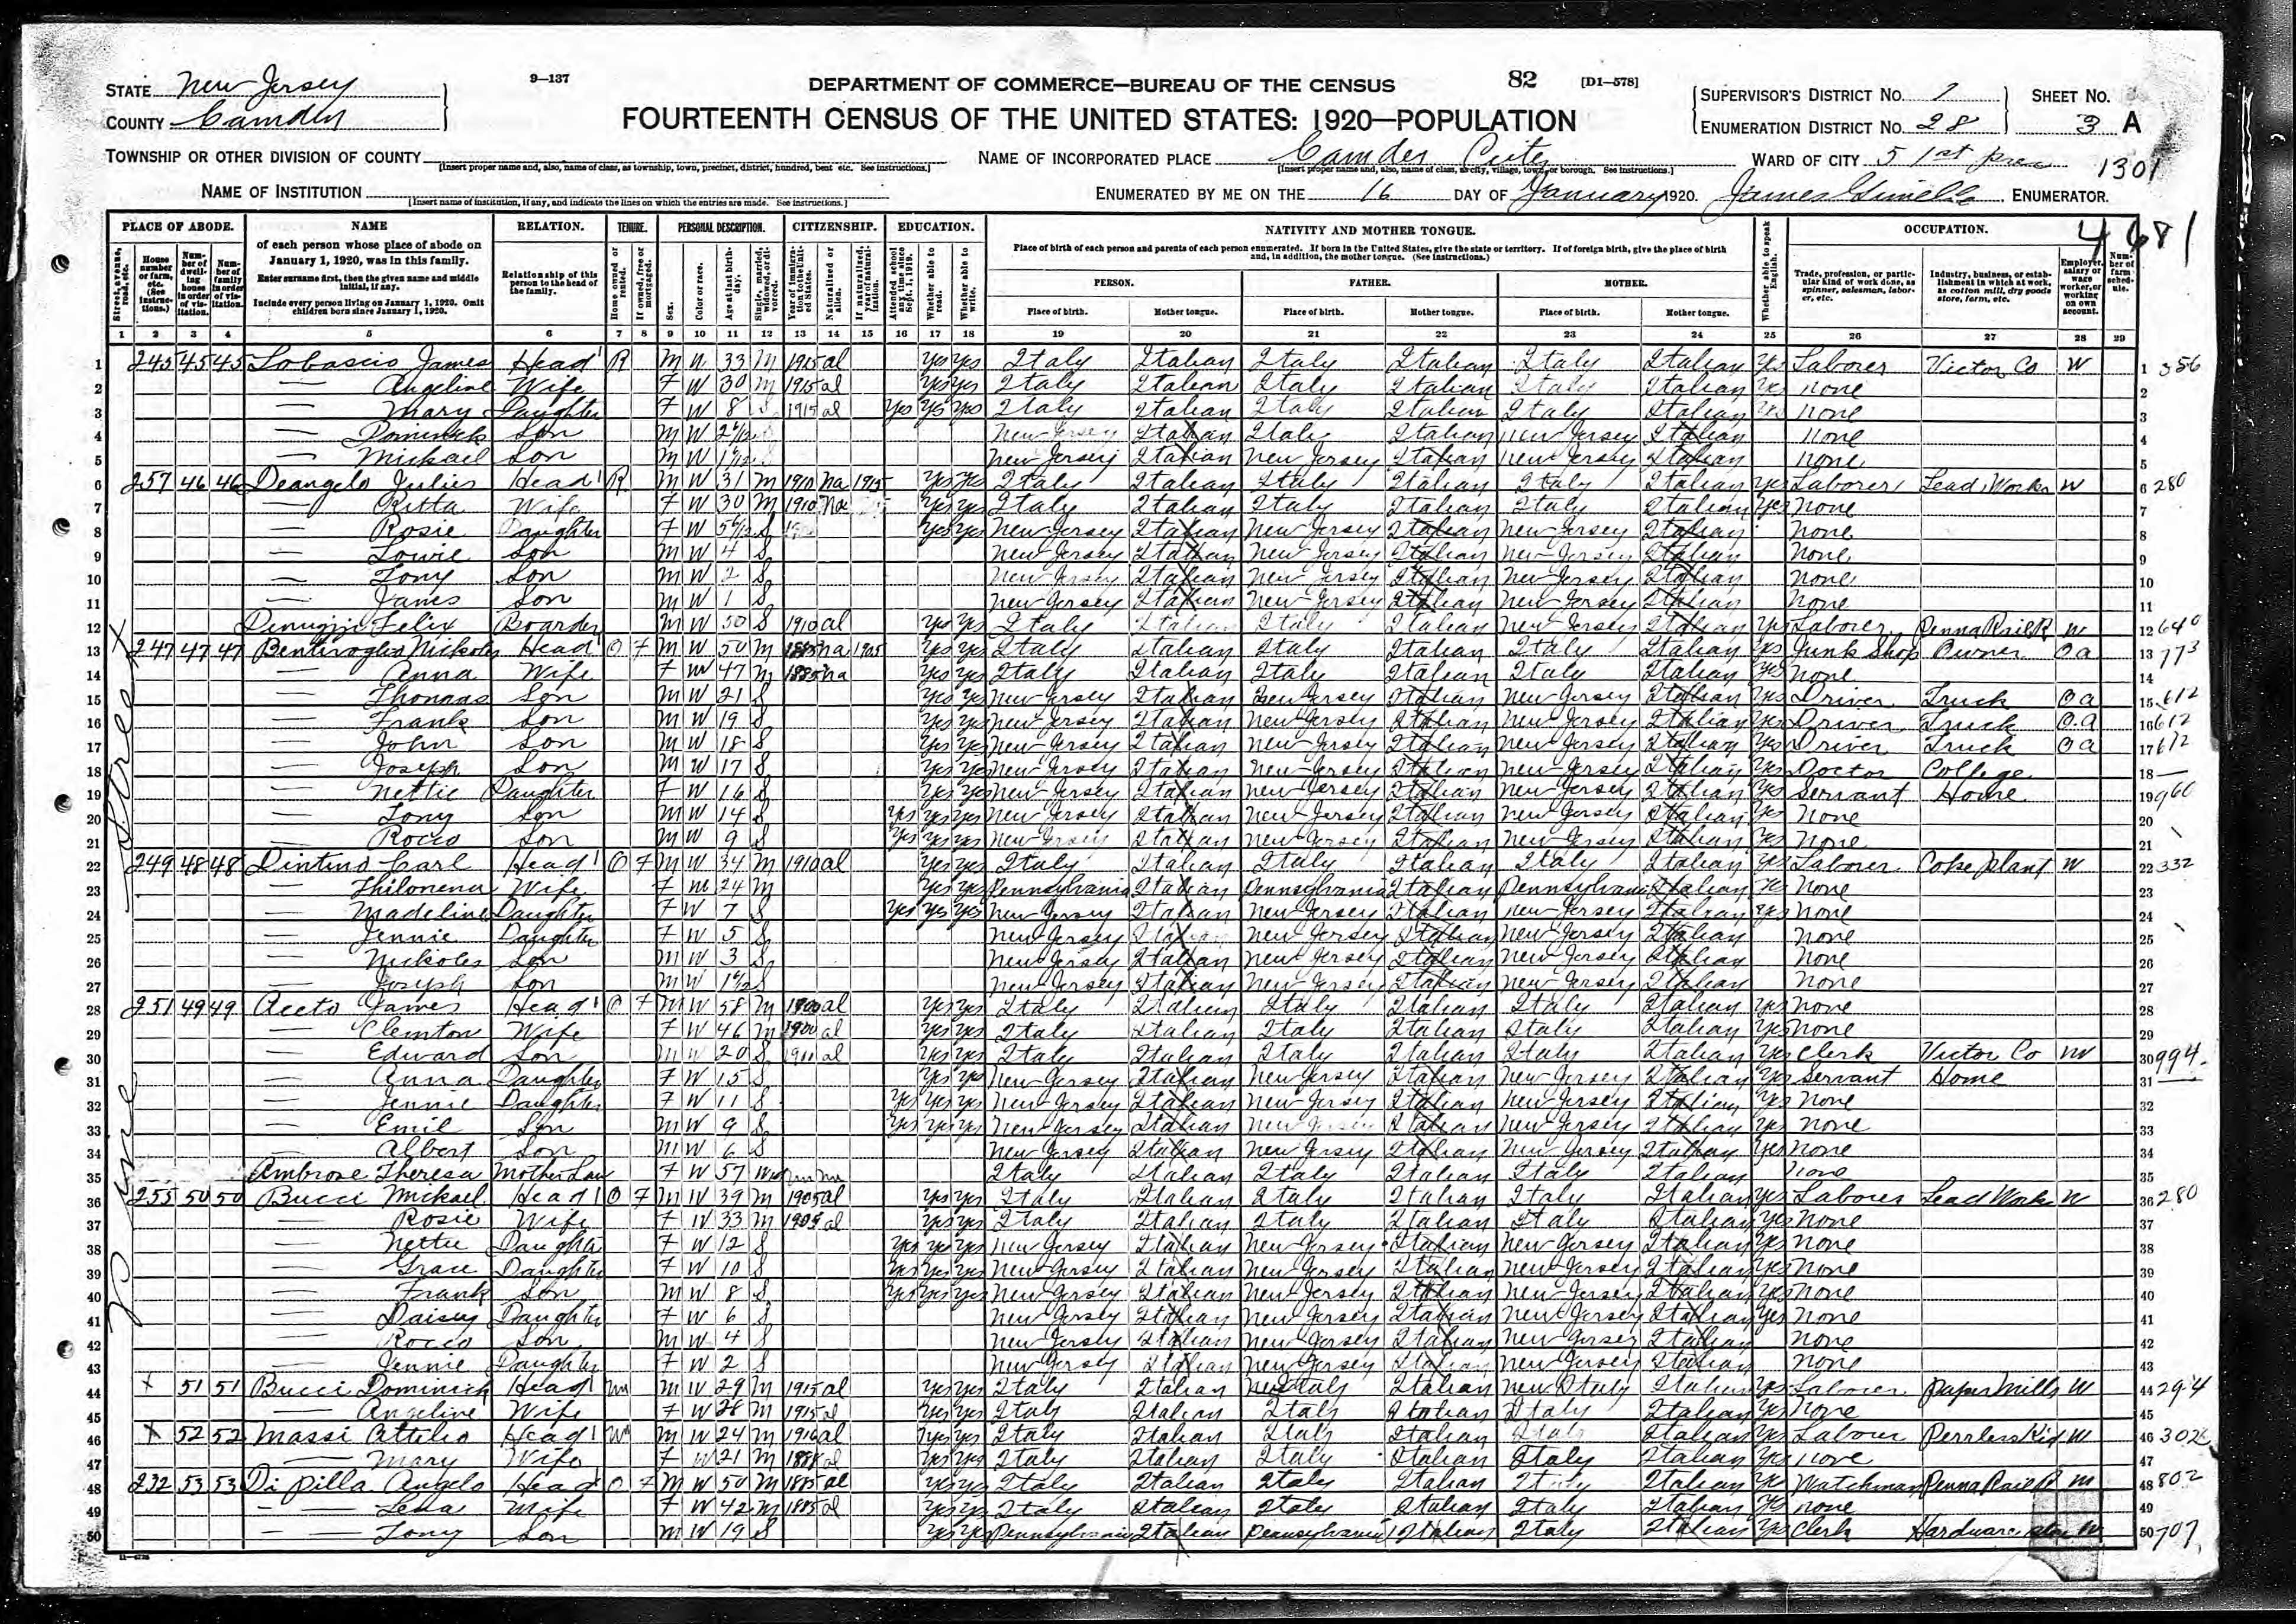 STATE New Jersey
COUNTY Camden
9—137
DEPARTMENT OF COMMERCE—BUREAU OF THE CENSUS
82 [D1—578]
FOURTEENTH CENSUS OF THE UNITED STATES: 1920—POPULATION
SUPERVISOR'S DISTRICT No. 1
ENUMERATION DISTRICT No. 28
SHEET No. 3 A
TOWNSHIP OR OTHER DIVISION OF COUNTY
[Insert proper name and, also, name of class, as township, town, precinct, district, hundred, beat etc. See instructions.]
NAME OF INCORPORATED PLACE Camden City
[Insert proper name and, also, name of class, as city, village, town, or borough. See instructions.]
WARD OF CITY 5 1st 1301
NAME OF INSTITUTION
[Insert name of institution, if any, and indicate the lines on which the entries are made. See instructions.]
ENUMERATED BY ME ON THE 16 DAY OF January 1920. James ENUMERATOR.
4681
PLACE OF ABODE. NAME RELATION. TENURE. PERSONAL DESCRIPTION. CITIZENSHIP. EDUCATION. NATIVITY AND MOTHER TONGUE. OCCUPATION.
Street, avenue, road, etc.
House number or farm, etc. (See instructions.)
Number of dwelling house in order of visitation.
Number of family in order of visitation.
of each person whose place of abode on January 1, 1920, was in this family.
Enter surname first, then the given name and middle initial, if any.
Include every person living on January 1, 1920. Omit children born since January 1, 1920.
Relationship of this person to the head of the family.
Home owned or rented.
If owned, free or mortgaged.
Sex.
Color or race.
Age at last birthday.
Single, married, widowed, or divorced.
Year of immigration to the United States.
Naturalized or alien.
If naturalized, year of naturalization.
Attended school any time since Sept. 1, 1919.
Whether able to read.
Whether able to write.
Place of birth of each person and parents of each person enumerated. If born in the United States, give the state or territory. If of foreign birth, give the place of birth and, in addition, the mother tongue. (See instructions.)
PERSON. FATHER. MOTHER.
Place of birth. Mother tongue. Place of birth. Mother tongue. Place of birth. Mother tongue.
Whether able to speak English.
Trade, profession, or particular kind of work done, as spinner, salesman, laborer, etc.
Industry, business, or establishment in which at work, as cotton mill, dry goods store, farm, etc.
Employer, salary or wage worker, or working on own account.
Number of farm schedule.
1 2 3 4 5 6 7 8 9 10 11 12 13 14 15 16 17 18 19 20 21 22 23 24 25 26 27 28 29
1 245 45 45 Lobascio James Head R M W 33 M 1915 al Yes Yes Italy Italian Italy Italian Italy Italian Yes Laborer Victor Co W 1 356
2 — Angeline Wife F W 30 M 1915 al Yes Yes Italy Italian Italy Italian Italy Italian Yes None 2
3 — Mary Daughter F W 8 S 1915 al Yes Yes Yes Italy Italian Italy Italian Italy Italian Yes None 3
4 — Dominick Son M W New Jersey Italian Italy Italian New Jersey Italian None 4
5 — Mickael Son M W New Jersey Italian New Jersey Italian New Jersey Italian None 5
6 257 46 46 Deangelo Julies Head R M W 31 M 1910 Na 1915 Yes Yes Italy Italian Italy Italian Italy Italian Yes Laborer Lead Works W 6 280
7 — Ritta Wife F W 30 M 1910 Na Yes Yes Italy Italian Italy Italian Italy Italian Yes None 7
8 — Rosie Daughter F W S Yes Yes New Jersey Italian New Jersey Italian New Jersey Italian None 8
9 — Lowie Son M W 4 S New Jersey Italian New Jersey Italian New Jersey Italian None 9
10 — Tony Son M W 2 S New Jersey Italian New Jersey Italian New Jersey Italian None 10
11 — James Son M W 1 S New Jersey Italian New Jersey Italian New Jersey Italian None 11
12 Felix Boarder M W 50 S 1910 al Yes Yes Italy Italian Italy Italian New Jersey Italian Yes Laborer Penna Rail R W 12 640
13 247 47 47 Bentivoglio Nickoles Head O F M W 50 M 1885 na 1905 Yes Yes Italy Italian Italy Italian Italy Italian Yes Junk Shop Owner O a 13 773
14 — Anna Wife F W 47 M 1885 na Yes Yes Italy Italian Italy Italian Italy Italian Yes None 14
15 — Thomas Son M W 21 S Yes Yes New Jersey Italian New Jersey Italian New Jersey Italian Yes Driver Truck O a 15 612
16 — Frank Son M W 19 S Yes Yes New Jersey Italian New Jersey Italian New Jersey Italian Yes Driver Truck O.a 16 612
17 — John Son M W 18 S Yes Yes New Jersey Italian New Jersey Italian New Jersey Italian Yes Driver Truck O a 17 612
18 — Joseph Son M W 17 S Yes Yes New Jersey Italian New Jersey Italian New Jersey Italian Yes Doctor College 18 —
19 — Nettie Daughter F W 16 S Yes Yes New Jersey Italian New Jersey Italian New Jersey Italian Yes Servant Home 19 960
20 — Tony Son M W 14 S Yes Yes Yes New Jersey Italian New Jersey Italian New Jersey Italian Yes None 20
21 — Rocco Son M W 9 S Yes Yes Yes New Jersey Italian New Jersey Italian New Jersey Italian Yes None 21
22 249 48 48 Dintino Carl Head O F M W 34 M 1910 al Yes Yes Italy Italian Italy Italian Italy Italian Yes Laborer Coke Plant W 22 332
23 — Philomena Wife F W 24 M Yes Yes Pennsylvania Italian Pennsylvania Italian Pennsylvania Italian Yes None 23
24 — Madeline Daughter F W 7 S Yes Yes Yes New Jersey Italian New Jersey Italian New Jersey Italian Yes None 24
25 — Jennie Daughter F W 5 S New Jersey Italian New Jersey Italian New Jersey Italian None 25
26 — Nickoles Son M W 3 S New Jersey Italian New Jersey Italian New Jersey Italian None 26
27 — Joseph Son M W S New Jersey Italian New Jersey Italian New Jersey Italian None 27
28 251 49 49 Aceto James Head O F M W 58 M 1900 al Yes Yes Italy Italian Italy Italian Italy Italian Yes None 28
29 — Clemton Wife F W 46 M 1900 al Yes Yes Italy Italian Italy Italian Italy Italian Yes None 29
30 — Edward Son M W 20 S 1911 al Yes Yes Italy Italian Italy Italian Italy Italian Yes Clerk Victor Co W 30 994
31 — Anna Daughter F W 15 S Yes Yes New Jersey Italian New Jersey Italian New Jersey Italian Yes Servant Home 31 —
32 — Jennie Daughter F W 11 S Yes Yes Yes New Jersey Italian New Jersey Italian New Jersey Italian Yes None 32
33 — Emil Son M W 9 S Yes Yes Yes New Jersey Italian New Jersey Italian New Jersey Italian Yes None 33
34 — Albert Son M W 6 S New Jersey Italian New Jersey Italian New Jersey Italian Yes None 34
35 Ambrose Theresa Mother Law F W 57 Wid Italy Italian Italy Italian Italy Italian None 35
36 255 50 50 Bucci Mickael Head O F M W 39 M 1905 al Yes Yes Italy Italian Italy Italian Italy Italian Yes Laborer Lead Work W 36 280
37 — Rosie Wife F W 33 M 1905 al Yes Yes Italy Italian Italy Italian Italy Italian Yes None 37
38 — Nettie Daughter F W 12 S Yes Yes Yes New Jersey Italian New Jersey Italian New Jersey Italian Yes None 38
39 — Grace Daughter F W 10 S Yes Yes Yes New Jersey Italian New Jersey Italian New Jersey Italian Yes None 39
40 — Frank Son M W 8 S Yes Yes Yes New Jersey Italian New Jersey Italian New Jersey Italian Yes None 40
41 — Daisey Daughter F W 6 S New Jersey Italian New Jersey Italian New Jersey Italian Yes None 41
42 — Rocco Son M W 4 S New Jersey Italian New Jersey Italian New Jersey Italian None 42
43 — Jennie Daughter F W 2 S New Jersey Italian New Jersey Italian New Jersey Italian None 43
44 X 51 51 Bucci Dominick Head M W 29 M 1915 al Yes Yes Italy Italian Italy Italian New Italy Italian Yes Laborer Paper Mills W 44 294
45 — Angeline Wife F W 28 M 1915 al Yes Yes Italy Italian Italy Italian Italy Italian Yes None 45
46 X 52 52 Massi Attilio Head M W 24 M 1916 al Yes Yes Italy Italian Italy Italian Italy Italian Yes Laborer Perrless Kid W 46 302
47 — Mary Wife F W 21 M 1898 al Yes Yes Italy Italian Italy Italian Italy Italian Yes None 47
48 232 53 53 Di pilla Angelo Head O F M W 50 M 1885 al Yes Yes Italy Italian Italy Italian Italy Italian Yes Watchman Penna Rail R W 48 802
49 — Lena Wife F W 42 M 1885 al Yes Yes Italy Italian Italy Italian Italy Italian Yes None 49
50 — Tony Son M W 19 S Yes Yes Pennsylvania Italian Pennsylvania Italian Italy Italian Yes Clerk Hardware store W 50 707
Pine Street